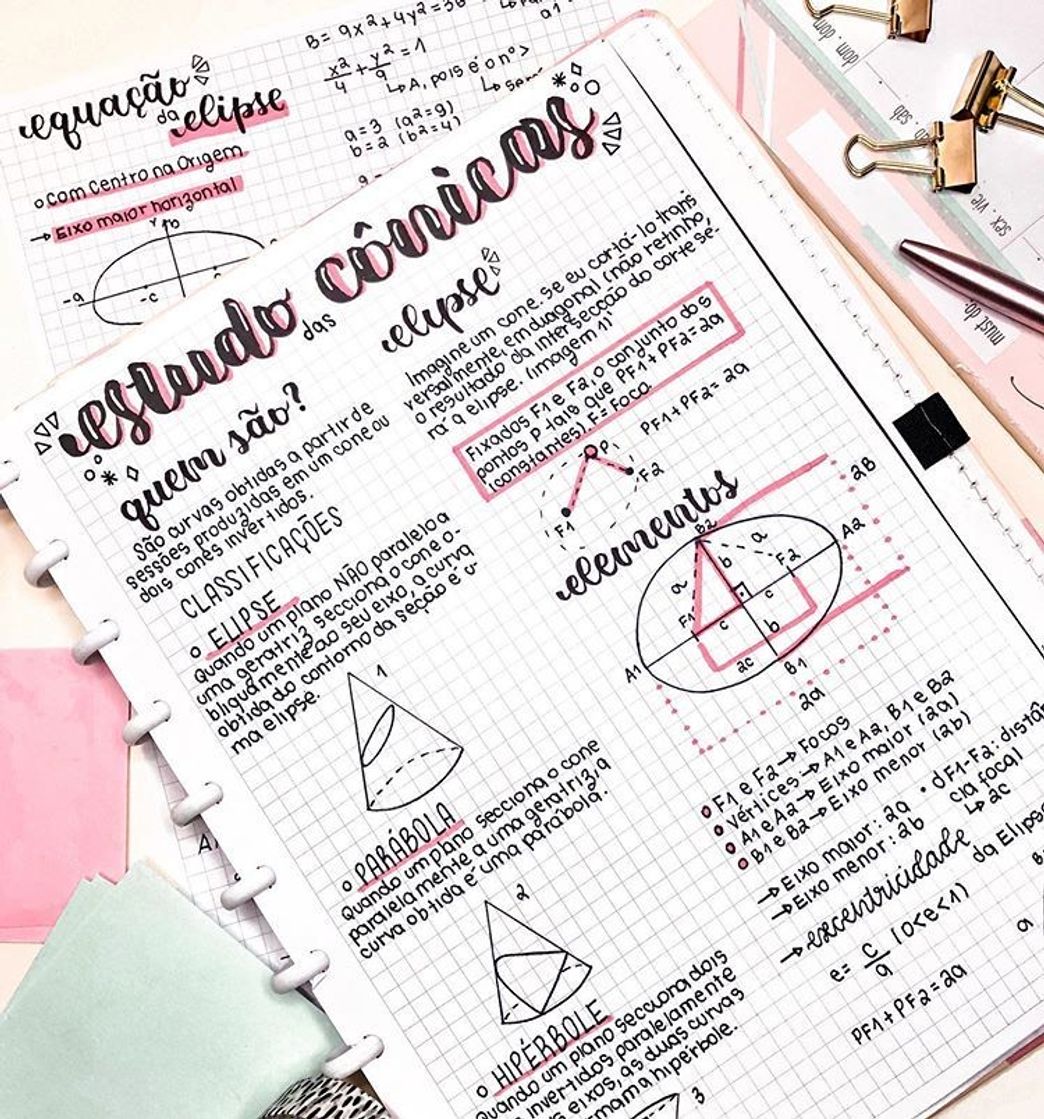 equação
da elipse
o com centro na origem
→ Eixo maior horizontal
y
b
-a
-c
B = 9x²+4y²=36
x²/4 + y²/9 = 1
↳ A, pois é o nº >
a=3 (a²=9)
b=2 (b²=4)
a1
estudo das cônicas
quem são?
São curvas obtidas a partir de
sessões produzidas em um cone ou
dois cones invertidos.
CLASSIFICAÇÕES
o ELIPSE
Quando um plano NÃO paralelo a
uma geratriz secciona o cone o-
bliquamente ao seu eixo, a curva
obtida do contorno da seção é u-
ma elipse.
1
o PARÁBOLA
Quando um plano secciona o cone
paralelamente a uma geratriz, a
curva obtida é uma parábola.
2
o HIPÉRBOLE
Quando um plano secciona dois
invertidos paralelamente
eixos, as duas curvas
mam a hipérbole.
3
elipse
Imagine um cone. Se eu cortá-lo trans
versalmente, em diagonal (não retinho,
o resultado da intersecção do corte se-
rá a elipse. (imagem 1)
Fixados F1 e F2, o conjunto dos
pontos P tais que PF1 + PF2 = 2a
(constantes). F = Foco.
P1
F2
F1
PF1 + PF2 = 2a
elementos
B2
2B
A2
a
a
b
F2
F1
c
c
b
2c
A1
B1
2a
F1 e F2 → Focos
vértices → A1 e A2, B1 e B2
A1 e A2 → Eixo maior (2a)
B1 e B2 → Eixo menor (2b)
→ Eixo maior: 2a
→ Eixo menor: 2b
• dF1-F2: distân
cia focal
↳ 2c
→ excentricidade da Elipse
e = c/a (0<e<1)
PF1 + PF2 = 2a
a
dom.
sab
sex. vie
must do: